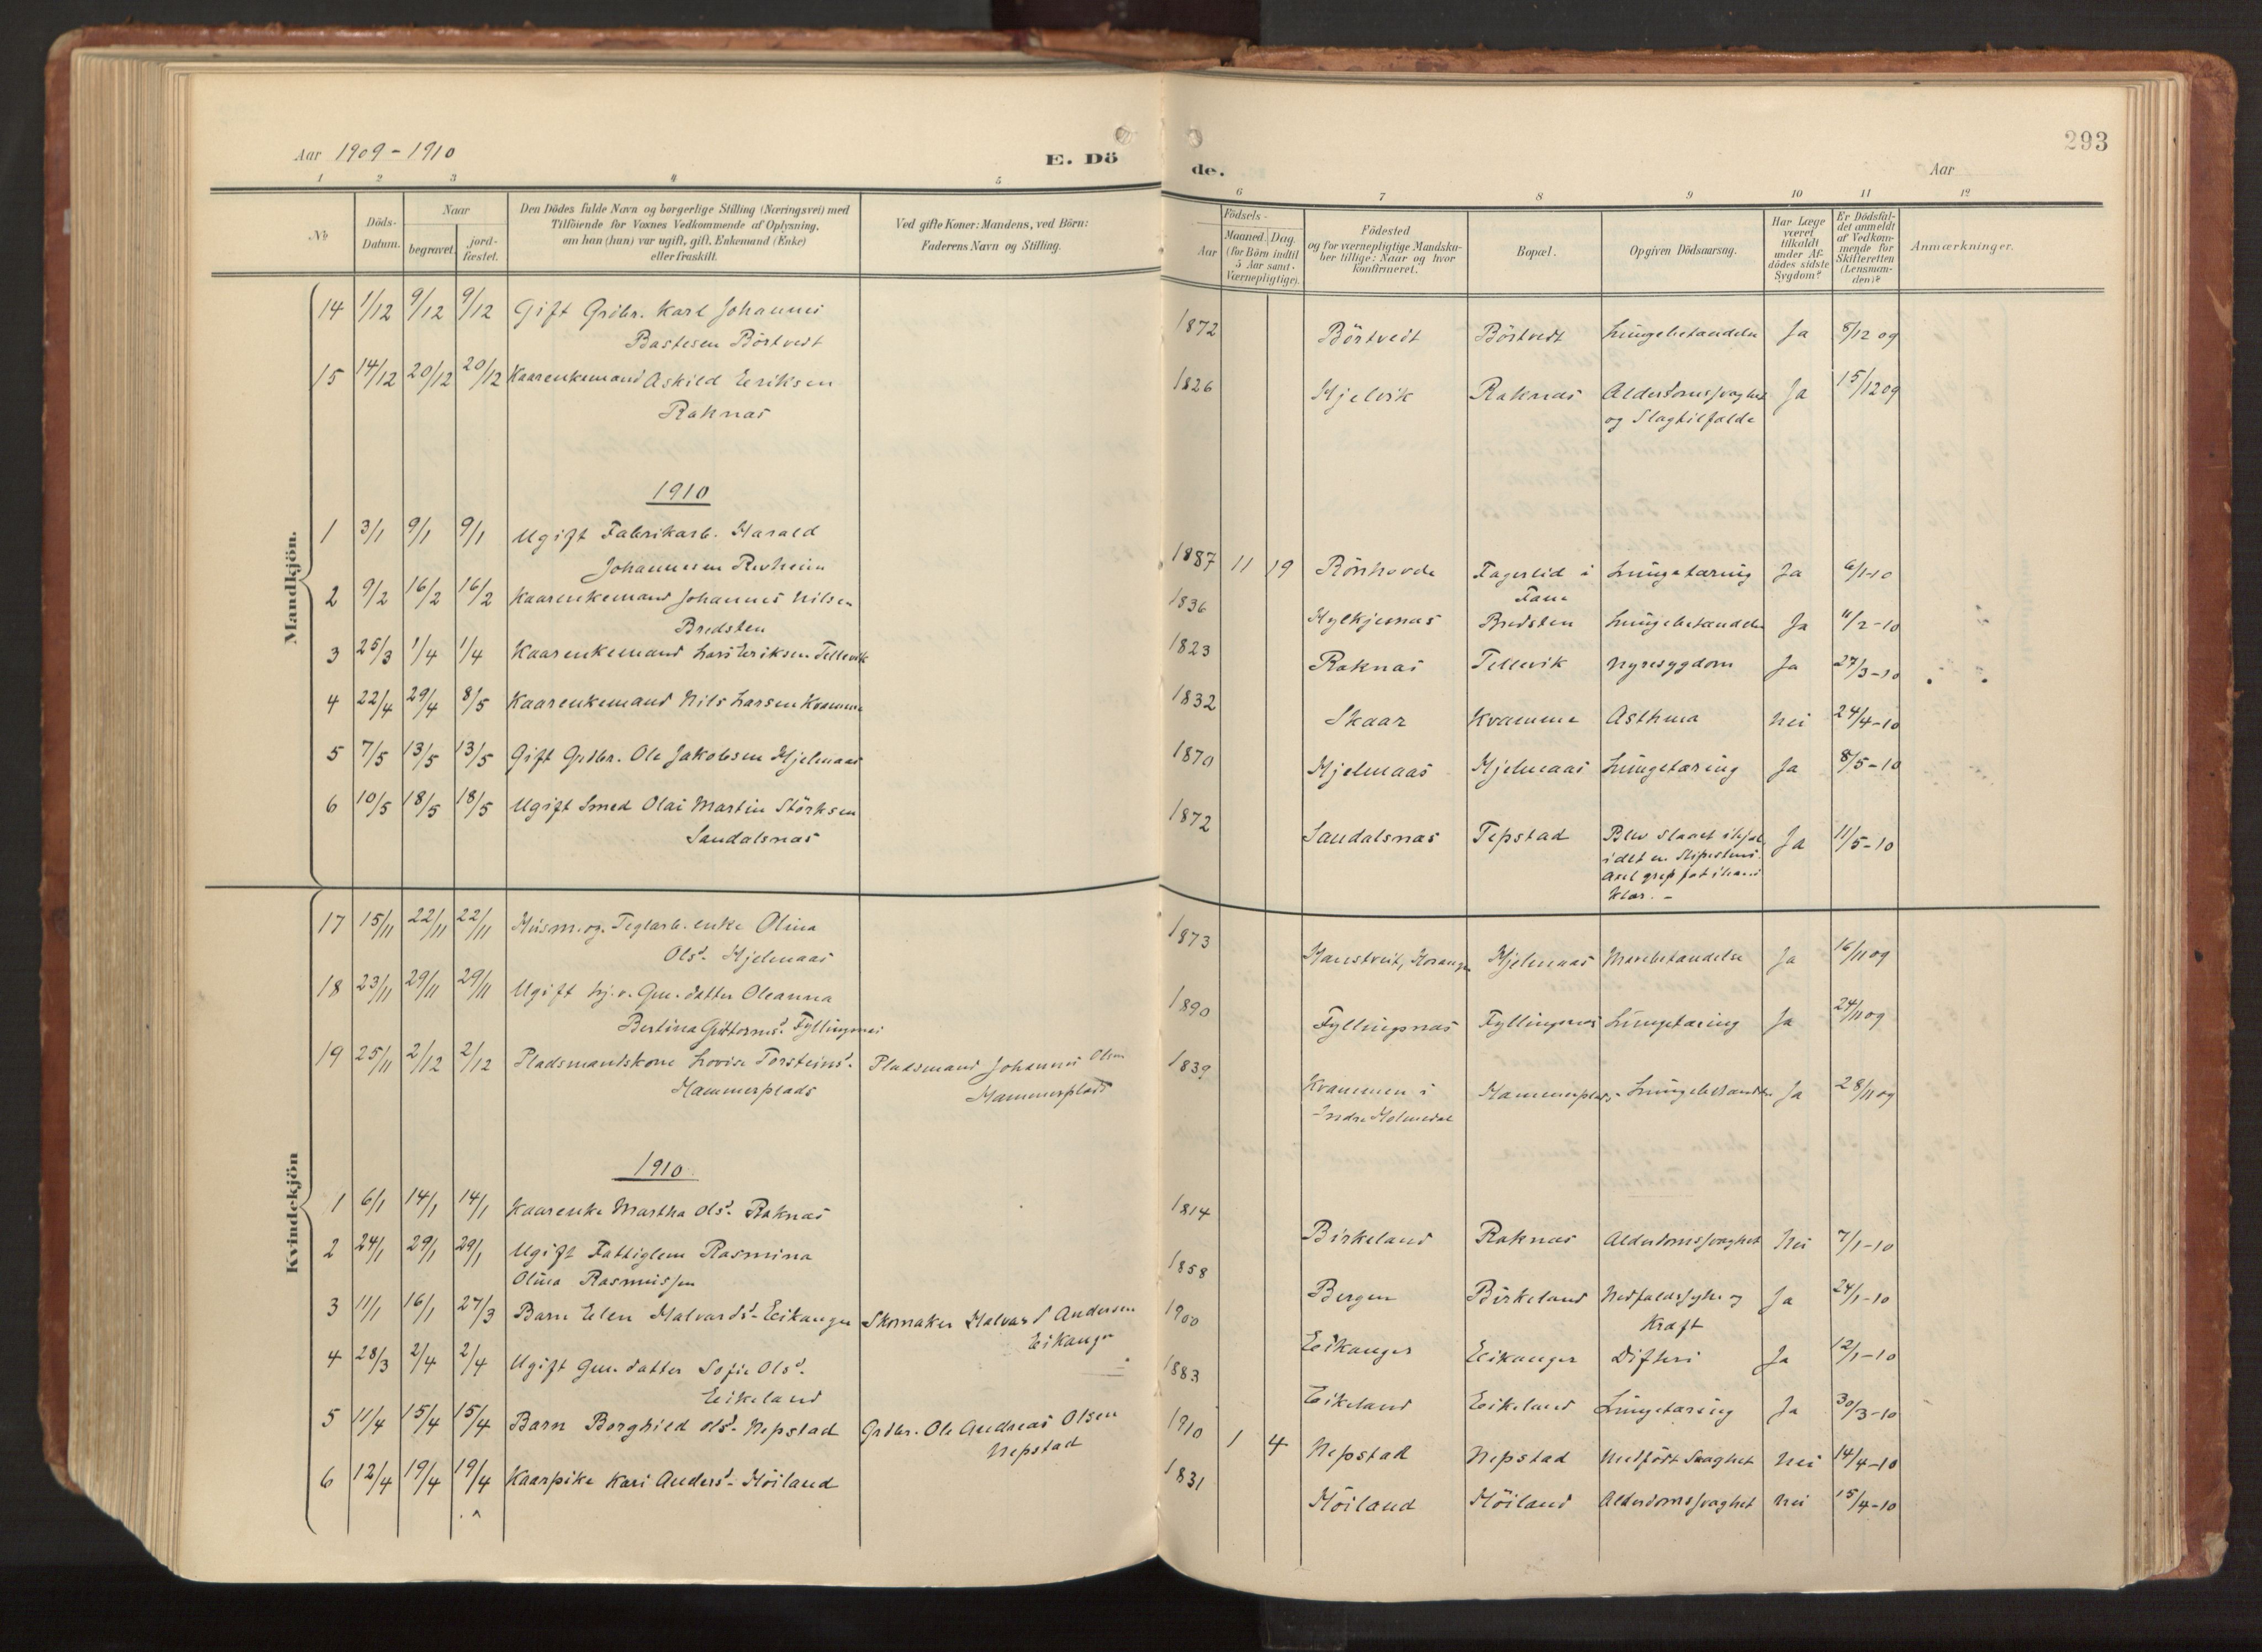 293
Aar 1909-1910
E. Dö
de.
Aar
1 2 3 4 5 6 7 8 9 10 11 12
No
Döds-
Datum.
Naar
begravet.
jord-
fæstet.
Den Dödes fulde Navn og borgerlige Stilling (Næringsvei) med
Tilföiende for Voxnes Vedkommende af Oplysning,
om han (hun) var ugift, gift, Enkemand (Enke)
eller fraskilt.
Ved gifte Koner: Mandens, ved Börn:
Faderens Navn og Stilling.
Födsels-
Aar
Maaned. Dag.
(for Börn indtil
5 Aar samt
Værnepligtige).
Födested
og for værnepligtige Mandska-
ber tillige: Naar og hvor
konfirmeret.
Bopæl.
Opgiven Dödsaarsag.
Har Læge
været
tilkaldt
under Af-
dödes sidste
Sygdom?
Er Dödsfal-
det anmeldt
af Vedkom-
mende for
Skifteretten
(Lensman-
den)?
Anmærkninger.
Mandkjön.
14 1/12 9/12 9/12 Gift Grdbr. Karl Johannes 1872 Börtveit Börtvedt Lungebetændelse Ja 5/12 09
Bastesen Börtvedt
15 14/12 20/12 20/12 Kaarenkemand Askild Eeriksen 1826 Hjelvik Raknas Alderdomssvaghet Ja 15/12 09
Raknas og Slagtilfælde
1910
1 3/1 9/1 9/1 Ugift Fabrikarb. Harald
Johannesen Revheim 1887 11 19 Rönhovde Fagerlid i Lungetæring Ja 6/1-10
Fane
2 9/2 16/2 16/2 Kaarenkemand Johannes Nilsen 1836 Hylkjesnas Bredsten Lungebetændelse Ja 11/2-10
Bredsten
3 25/3 1/4 1/4 Kaarenkemand Lars Eriksen Tellevik 1823 Raknas Tellevik Nyresygdom Ja 27/3-10
4 22/4 29/4 8/5 Kaarenkemand Nils Larsen Kvamme 1832 Skaar Kvamme Asthma Nei 24/4-10
5 7/5 13/5 13/5 Gift Grdbr. Ole Jakobsen Hjelmaas 1870 Hjelmaas Hjelmaas Lungetæring Ja 8/5-10
6 10/5 18/5 18/5 Ugift Smed Olai Martin Störksen 1872 Sandalsnas Tepstad Blev slaaet ihjel Ja 11/5-10
Sandalsnas idet en Slipestens
Axel grep fat i hans
Klær. -
Kvindekjön
17 15/11 22/11 22/11 Husm. og Teglarb. enke Olina 1873 Hanstveit, Hosanger Hjelmaas Mavebetændelse Ja 16/11 09
Olsd. Hjelmaas
18 23/11 29/11 29/11 Ugift hj.v. Gm. datter Oleanna 1890 Fyllingsnas Fyllingsnas Lungetæring Ja 24/11 09
Bertina Guttormsd. Fyllingsnas
19 25/11 2/12 2/12 Pladsmandskone Lovise Torsteinsd. Pladsmand Johannes Olsen 1839 Kvammen i Hammerplads Lungebetændelse Ja 28/11 09
Hammerplads Hammerplads Indre Holmedal
1910
1 6/1 14/1 14/1 Kaarenke Martha Olsd. Raknas 1814 Birkeland Raknas Alderdomssvaghet Nei 7/1-10
2 24/1 29/1 29/1 Ugift Fattiglem Rasmina 1858 Bergen Birkeland Nedfaldssyke og Ja 24/1-10
Olina Rasmussen Kræft
3 11/1 16/1 27/3 Barn Elen Halvardsd. Eikanger Skomaker Halvard Andersen 1900 Eikanger Eikanger Difteri Ja 12/1-10
Eikanger
4 28/3 2/4 2/4 Ugift Gm. datter Sofie Olsd. 1883 Eikeland Eikeland Lungetæring Ja 30/3-10
Eikeland
5 11/4 15/4 15/4 Barn Borghild Olsd. Nepstad Grdbr. Ole Andreas Olsen 1910 1 4 Nepstad Nepstad Medfödt Svaghet Nei 14/4-10
Nepstad
6 12/4 19/4 19/4 Kaarpike Kari Andersd. Höiland 1831 Höiland Höiland Alderdomssvaghet Nei 15/4-10